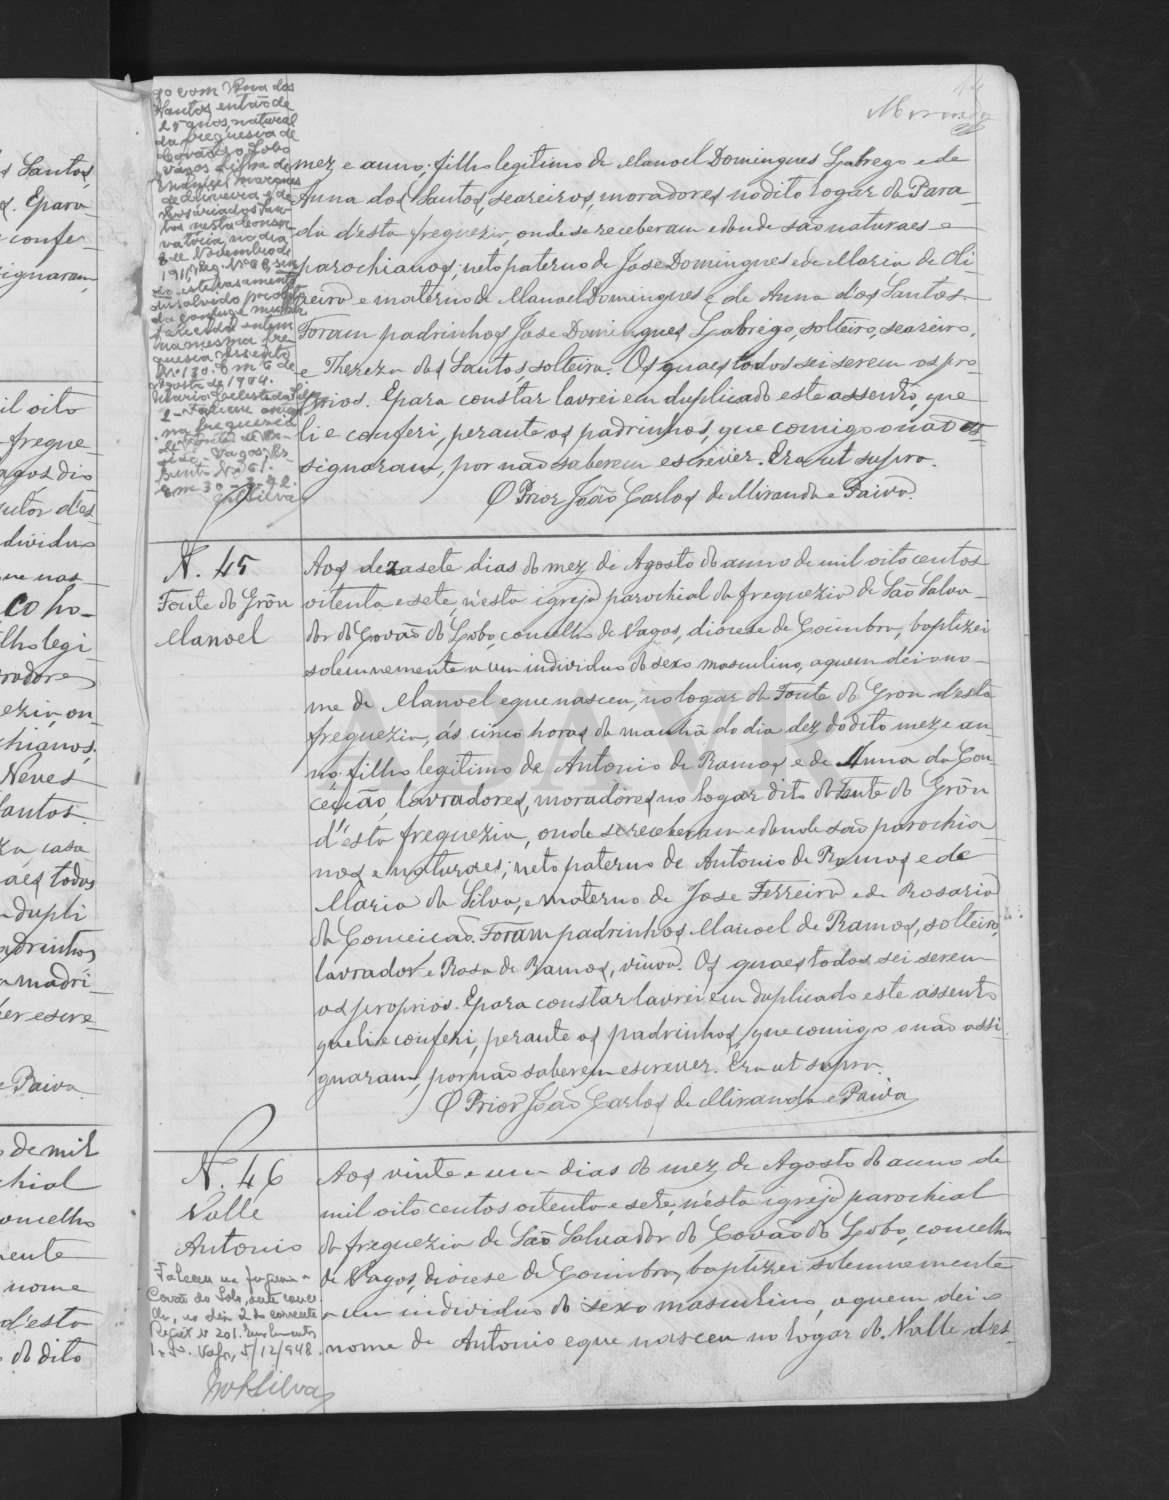 go com Rosa dos
Santos, então de
25 anos, natural
da freguesia de
Covão do Lobo
Vagos, filha de
Marques
de Oliveira e de
nesta conser
vatória, no dia
8 de Novembro de
1911,
este casamento
dissolvido por óbito
da conjuge mulher
falecida
na mesma fre
guesia assento
Nº 130. Em 6 de
Agosto de 1904.
2 - Faleceu
na freguesia
Vagos,
sento Nº 61.
Em 30-3-42.
Silva
Miranda
mez e anno; filho legitimo de Manoel Domingues Labrego e de
Anna dos Santos, seareiros, moradores no dito logar da Para-
da d'esta freguezia, onde se receberam e donde são naturaes e
parochianos; neto paterno de Jose Domingues e de Maria de Oli-
veira e materno de Manoel Domingues e de Anna dos Santos.
Foram padrinhos Jose Domingues Labrego, solteiro, seareiro,
e Thereza dos Santos, solteira. Os quaes todos sei serem os pro-
prios. E para constar lavrei em duplicado este assento, que
li e conferi, perante os padrinhos, que comigo o não as-
signaram, por não saberem escrever. Era ut supra.
O Prior João Carlos de Miranda e Paiva.
N. 45
Fonte do Grôu
Manoel
Aos dezasete dias do mez de Agosto do anno de mil oito centos
oitenta e sete, n'esta igreja parochial da freguezia de São Salva-
dor do Covão do Lobo, concelho de Vagos, diocese de Coimbra, baptizei
solemnemente a um individuo do sexo masculino, a quem dei o no-
me de Manoel e que nasceu, no logar da Fonte do Grou d'esta
freguezia, ás cinco horas da manhã do dia dez do dito mez e an-
no, filho legitimo de Antonio de Ramos e de Anna da Con-
ceição, lavradores, moradores no logar dito da Fonte do Grôu
d'esta freguezia, onde se receberam e donde são parochia-
nos e naturaes; neto paterno de Antonio de Ramos e de
Maria da Silva, e materno de Jose Ferreira e de Rosaria
da Conceicão. Foram padrinhos Manoel de Ramos, solteiro,
lavrador e Rosa de Ramos, viuva. Os quaes todos sei serem
os proprios. E para constar lavrei em duplicado este assento
que li e conferi, perante os padrinhos, que comigo o não assi-
gnaram, por não saberem escrever. Era ut supra.
O Prior João Carlos de Miranda e Paiva
N. 46
Valle
Antonio
Faleceu na freguesia
Covão do Lobo, deste conce-
lho, no dia 2 do corrente
Regist. nº 201.
Vagos, 5/12/948.
Silva
Aos vinte e um dias do mez de Agosto do anno de
mil oito centos oitenta e sete, n'esta igreja parochial
da freguezia de São Salvador do Covão do Lobo, concelho
de Vagos, diocese de Coimbra, baptizei solemnemente
a um individuo do sexo masculino, a quem dei o
nome de Antonio e que nasceu no logar do Valle d'es-
s Santos,
. E para
e confe-
signaram,
il oito
fregue-
agos dio
d'es-
dividuo
ue nas-
co ho-
ilho legi
radores
ezia, on-
chianos;
Neves
Santos.
casa
aes todos
dupli
adrinhos
a madri-
er escre-
e Paiva.
de mil
chial
oncelho
mente
nome
d'esta
do dito
ADAVR